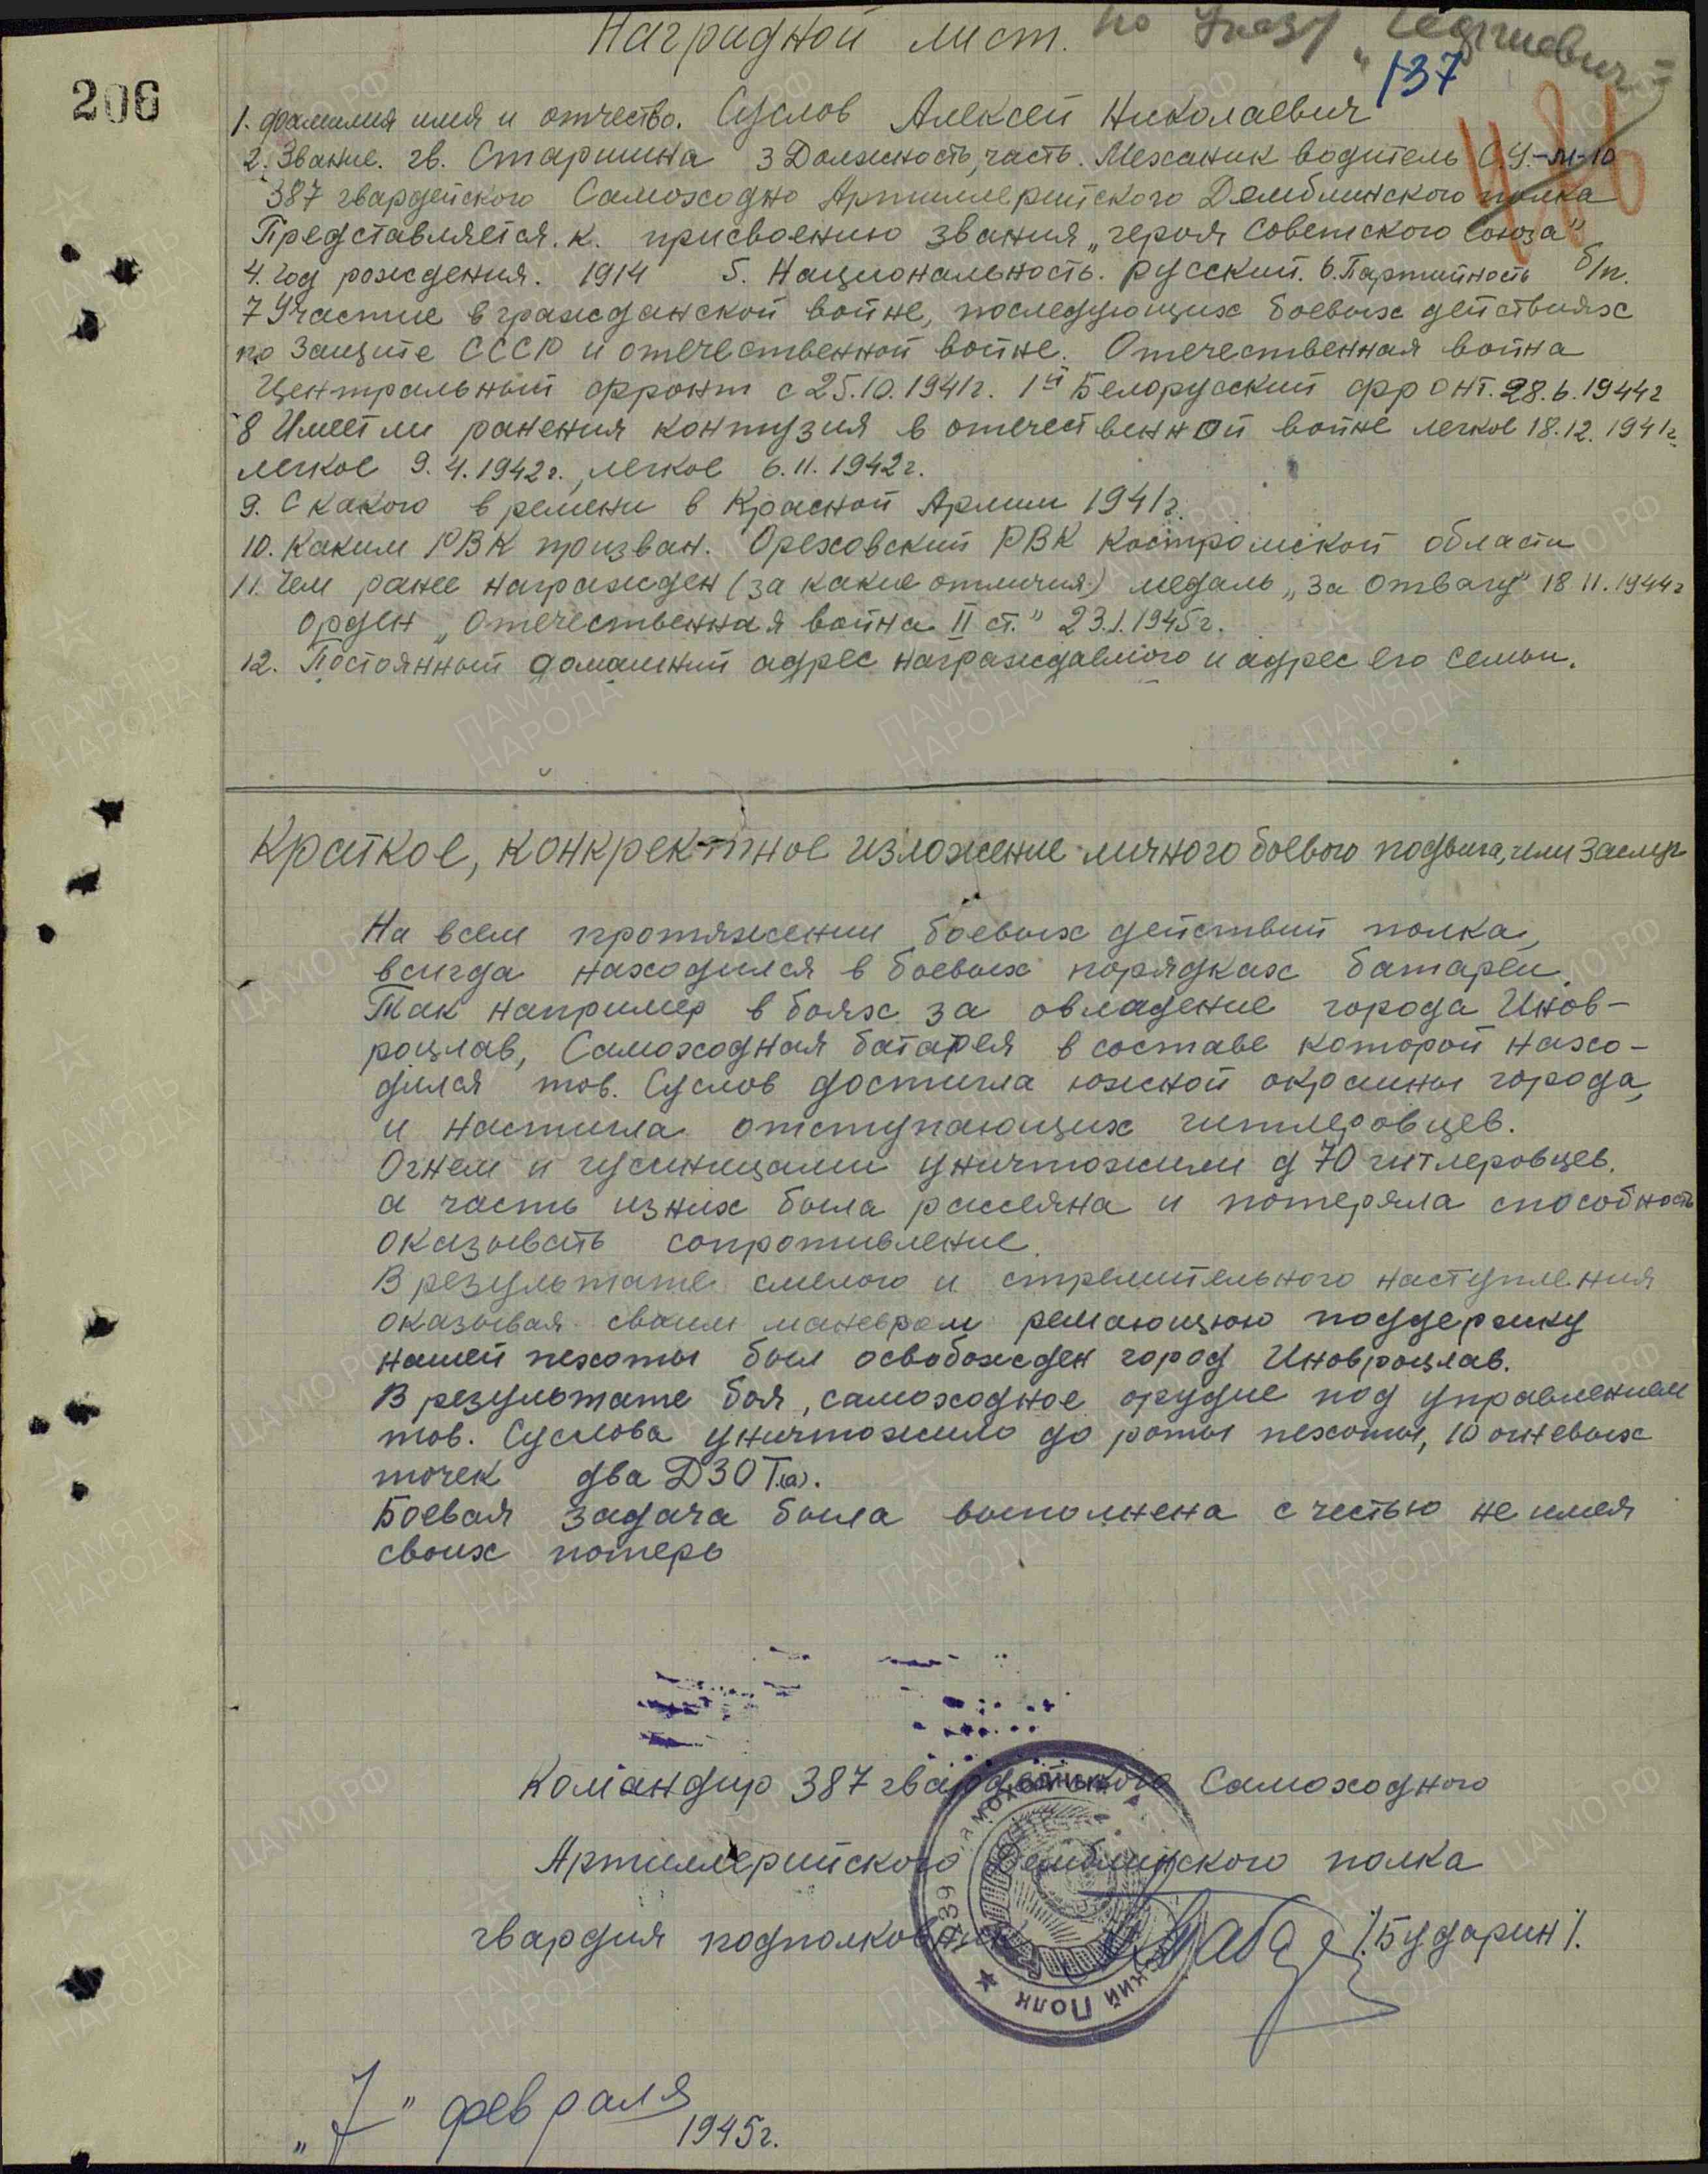 Наградной лист. по Указу
137
206
1. фамилия имя и отчество. Суслов Алексей Николаевич
2. Звание. гв. Старшина 3 Должность, часть. Механик водитель С.У.-М-10
387 гвардейского Самоходно Артиллерийского Демблинского полка
Представляется. к. присвоению звания „героя Советского Союза"
4. год рождения. 1914 5. Национальность. русский. 6. Партийность б/п.
7 Участие в гражданской войне, последующих боевых действиях
по защите СССР и отечественной войне. Отечественная война
Центральный фронт с 25.10.1941г. 1й Белорусский фронт. 28.6.1944г
8 Имеет ли ранения контузия в отечественной войне легкое 18.12.1941г.
легкое 9.4.1942г., легкое 6.11.1942г.
9. С какого времени в Красной Армии 1941г.
10. Каким РВК призван. Ореховский РВК Костромской области
11. Чем ранее награжден (за какие отличия) медаль „За отвагу" 18.11.1944г
орден „Отечественная война II ст." 23.1.1945г.
12. Постоянный домашний адрес награждаемого и адрес его семьи.
Краткое, конкректное изложение личного боевого подвига, или заслуг
На всем протяжении боевых действий полка,
всигда находился в боевых порядках батареи.
Так например в боях за овладение города Инов-
роцлав, Самоходная батарея в составе которой нахо-
дился тов. Суслов достигла южной окраины города,
и настигла отступающих гитлеровцев.
Огнем и гусиницами уничтожили д 70 гитлеровцев.
а часть из них была рассеяна и потеряла способность
оказывать сопротивление.
В результате смелого и стремительного наступления
оказывая своим маневром решающюю поддержку
нашей пехоты был освобожден город Иновроцлав.
В результате боя, самоходное орудие под управлением
тов. Суслова уничтожило до роты пехоты, 10 огневых
точек два ДЗОТ(а).
Боевая задача была выполнена с честью не имея
своих потерь
Командир 387 гвардейского Самоходного
Артиллерийского Демблинского полка
гвардия подполковник /.Будорин/.
„7" февраля
1945г.
ПАМЯТЬ НАРОДА
ЦАМО РФ